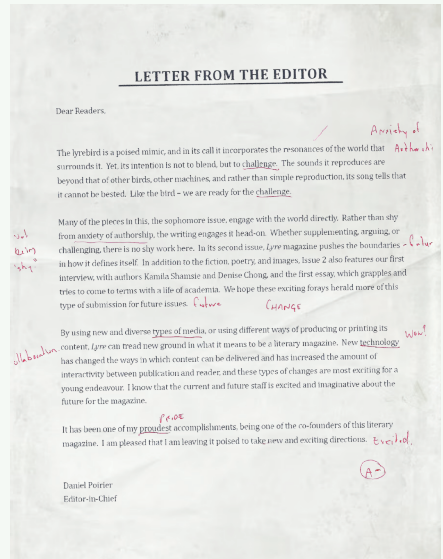 LETTER FROM THE EDITOR
Dear Readers,
Anxiety of
The lyrebird is a poised mimic, and in its call it incorporates the resonances of the world that
surrounds it. Yet, its intention is not to blend, but to challenge. The sounds it reproduces are
beyond that of other birds, other machines, and rather than simple reproduction, its song tells that
it cannot be bested. Like the bird – we are ready for the challenge.
Many of the pieces in this, the sophomore issue, engage with the world directly. Rather than shy
Not from anxiety of authorship, the writing engages it head-on. Whether supplementing, arguing, or
being challenging, there is no shy work here. In its second issue, Lyre magazine pushes the boundaries
"shy" in how it defines itself. In addition to the fiction, poetry, and images, Issue 2 also features our first
interview, with authors Kamila Shamsie and Denise Chong, and the first essay, which grapples and
tries to come to terms with a life of academia. We hope these exciting forays herald more of this
type of submission for future issues. future CHANGE
By using new and diverse types of media, or using different ways of producing or printing its
content, Lyre can tread new ground in what it means to be a literary magazine. New technology Wow!
has changed the ways in which content can be delivered and has increased the amount of
interactivity between publication and reader, and these types of changes are most exciting for a
young endeavour. I know that the current and future staff is excited and imaginative about the
future for the magazine.
PRIDE
It has been one of my proudest accomplishments, being one of the co-founders of this literary
magazine. I am pleased that I am leaving it poised to take new and exciting directions. Excited.
A-
Daniel Poirier
Editor-in-Chief